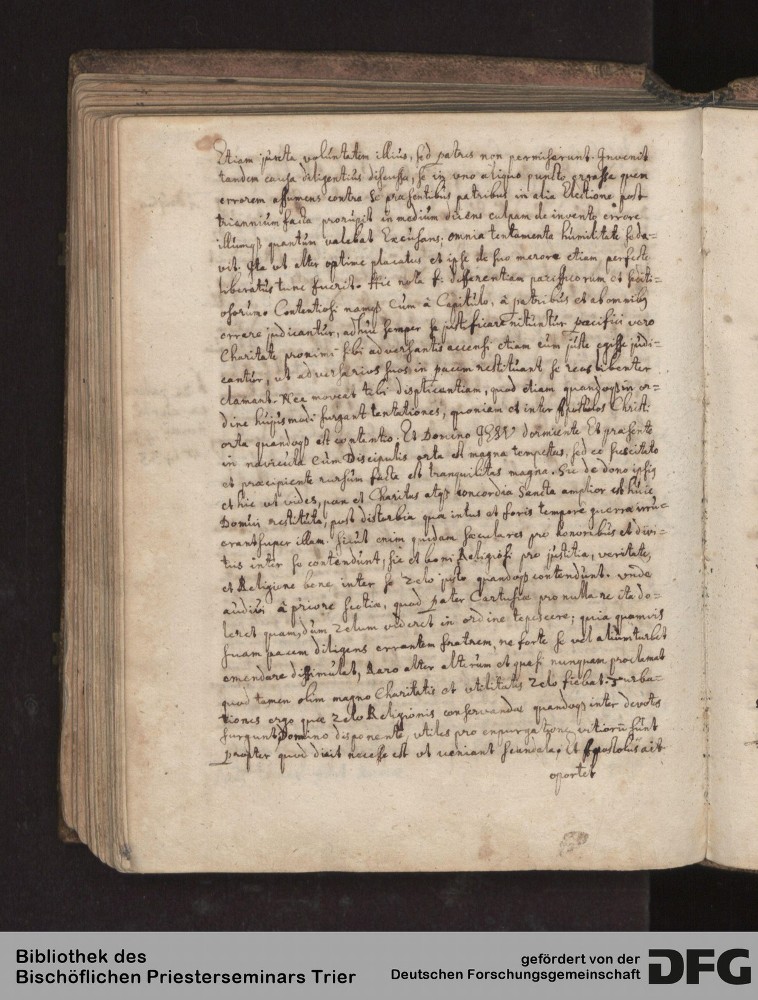 Etiam juxta voluntatem illius, sed patres non permiserunt. Invenit
tandem causa diligentius discussa, se in uno aliquo puncto errasse quem
errorem assumens contra se præsentibus patribus in alia Electione post
triennium facta prorupit in medium dicens culpam de invento errore
illumq3 quantum valebat Excusans: omnia tentamenta humilitate seda=
vit. Ita ut alter optime placatus et ipse de suo merore etiam perfecte
liberatus tunc fuerit. Hic nota differentiam pacificorum et sediti=
osorum. Contentiosi namq3 Cum â Capitulo, â patribus et ab omnibus
errare judicantur, adhuc semper se justificare nituntur pacifici vero
Charitate proximi sibi adversantis accensi etiam cum juste egisse judi=
cantur, ut adversarios suos in pacem restituant, se reos libenter
clamant. Nec moveat tibi displicentiam, quod etiam quandoq3 in or=
dine hujusmodi surgant tentationes, quoniam et inter Apostolos Christi
orta quandoq3 est contentio. Et Domino IESV dormiente Et præsente
in navicula Cum Discipulis orta est magna tempestas, sed eo suscitato
et præcipiente rursum facta est tranquilitas magna. Sic de dono ipsius
et hic ut vides, pax et Charitas atq3 concordia Sancta amplior est huic
Domui restituta, post disturbia quæ intus et foris tempore guerræ irru=
erant super illam. Sicut enim quidam sæculares pro honoribus et divi=
tiis inter se contendunt, sic et boni Religiosi pro justitia, veritate,
et Religione bene inter se zelo justo quandoq3 contendunt. unde
audivi â priore quod pater Cartusiæ pro nulla re ita do=
leret quam, dum zelum videret in ordine tepescere; quia quamvis
suam pacem diligens errantem fratrem, ne forte se vel alium turbet
emendare dissimulat, Raro alter alterum et quasi nunquam proclamat
quod tamen olim magno Charitatis et utilitatis zelo fiebat. Turba=
tiones ergo quæ zelo Religionis conservandæ quandoq3 inter devotos
surgunt Domino disponente, utiles pro expurgatione vitiorum sunt
propter quod dicit necesse est ut veniant scandala, et Apostolus ait
oportet
Bibliothek des
Bischöflichen Priesterseminars Trier
gefördert von der
Deutschen Forschungsgemeinschaft
DFG